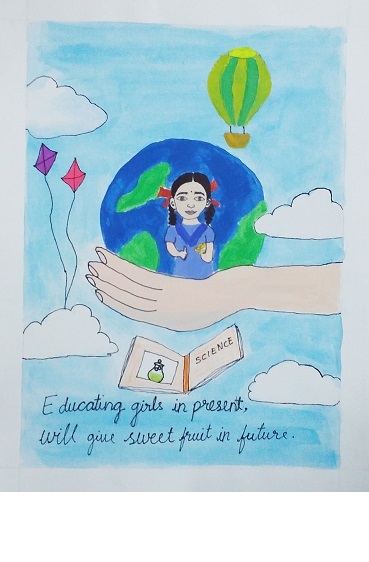 SCIENCE
Educating girls in present,
will give sweet fruit in future.